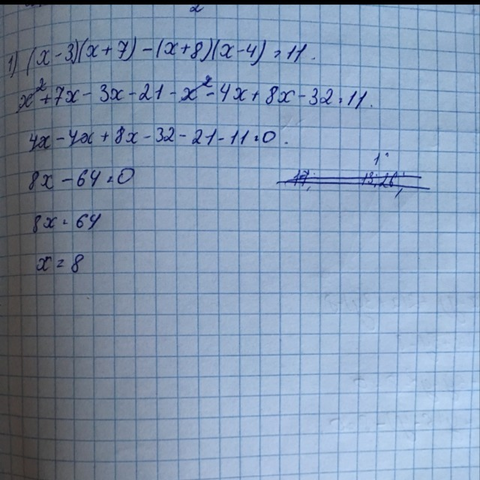 1) (x-3)(x+7)-(x+8)(x-4)=11.
x²+7x-3x-21-x²-4x+8x-32=11.
4x-4x+8x-32-21-11=0.
8x-64=0
8x=64
x=8